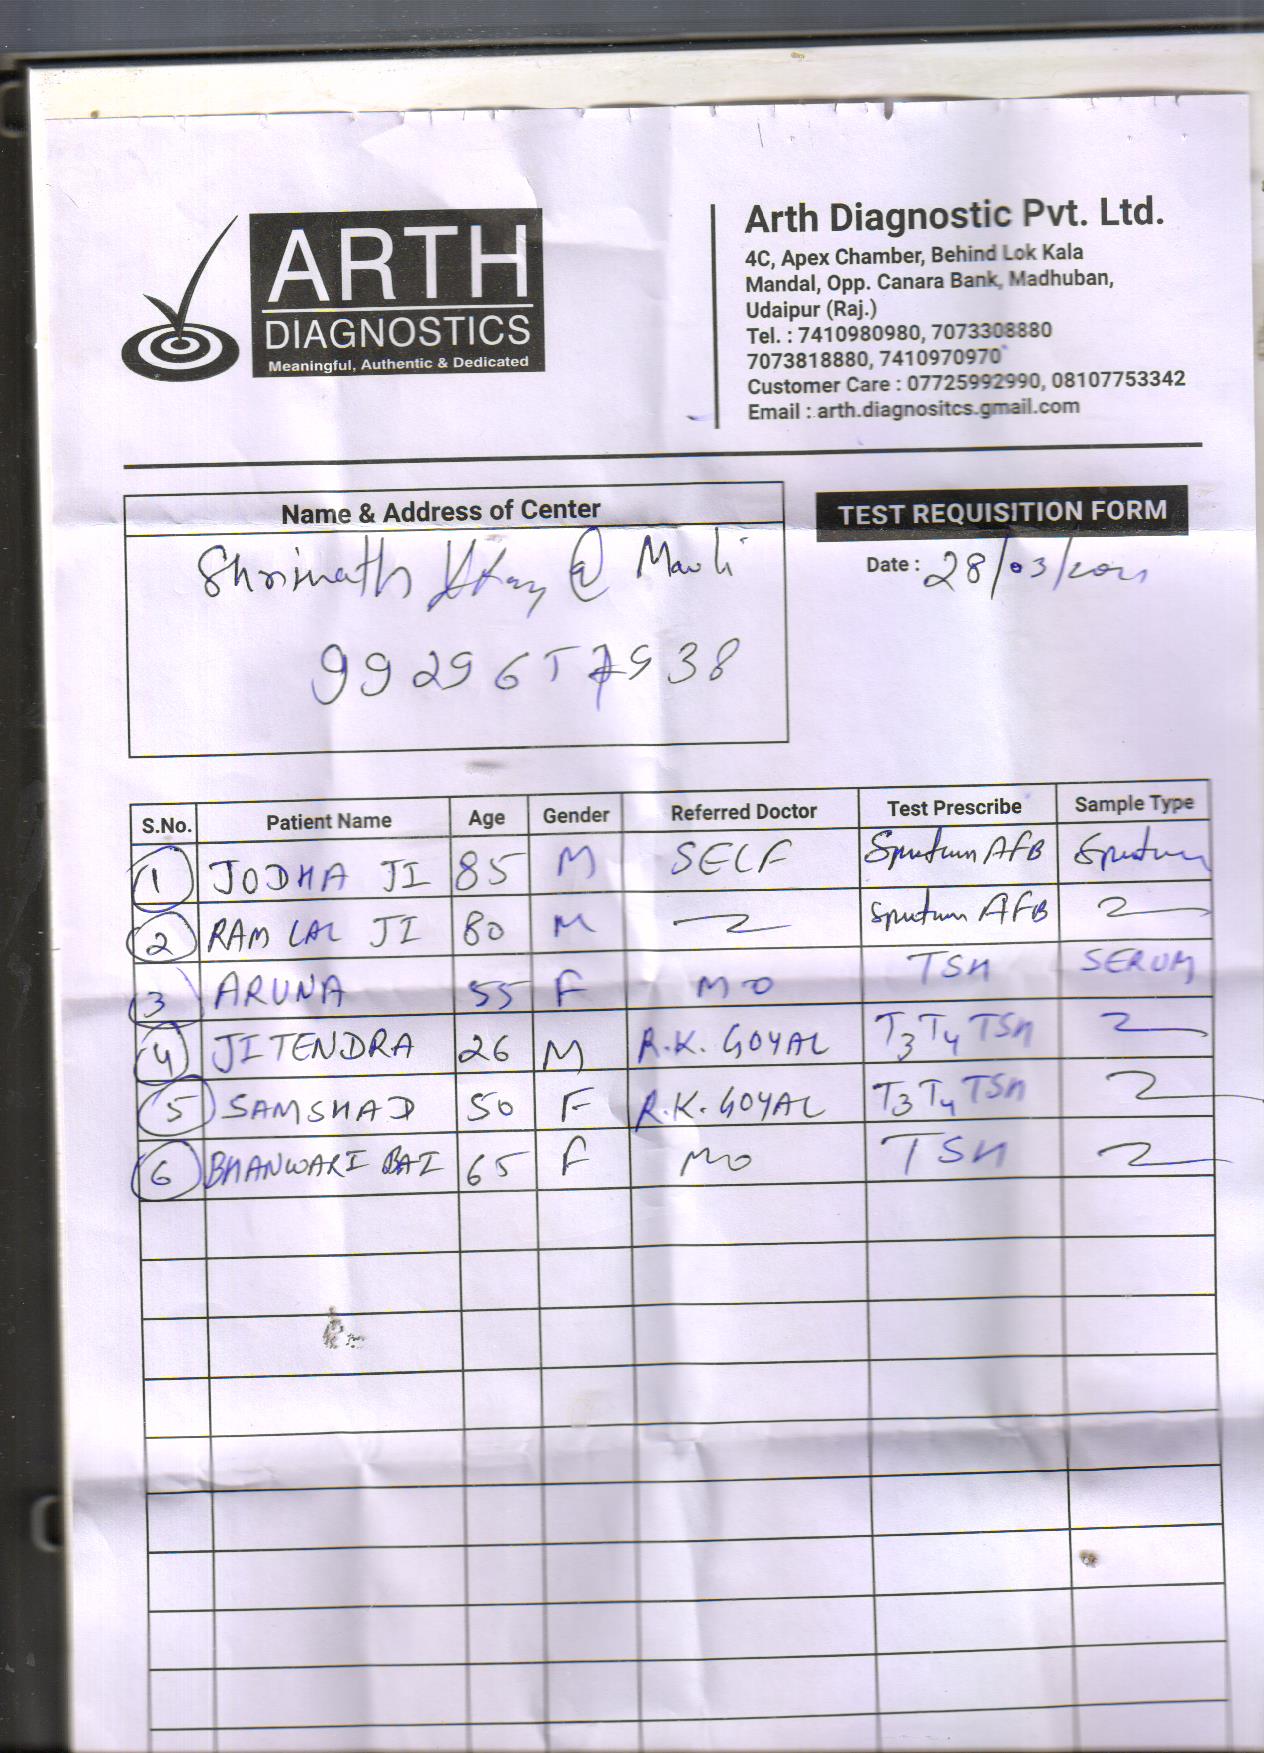 ARTH
DIAGNOSTICS
Meaningful, Authentic & Dedicated
Arth Diagnostic Pvt. Ltd.
4C, Apex Chamber, Behind Lok Kala
Mandal, Opp. Canara Bank, Madhuban,
Udaipur (Raj.)
Tel. : 7410980980, 7073308880
7073818880, 7410970970
Customer Care : 07725992990, 08107753342
Email : arth.diagnositcs.gmail.com
Name & Address of Center
Shrinath @ Mavli
TEST REQUISITION FORM
Date : 28/03/2021
S.No. Patient Name Age Gender Referred Doctor Test Prescribe Sample Type
1 JODHA JI 85 M SELF Sputum AFB Sputum
2 RAM LAL JI 80 M Sputum AFB
3 ARUNA 55 F MO TSH SERUM
4 JITENDRA 26 M R.K. GOYAL T3 T4 TSH
5 SAMSHAD 50 F R.K. GOYAL T3 T4 TSH
6 BHANWARI BAI 65 F MO TSH